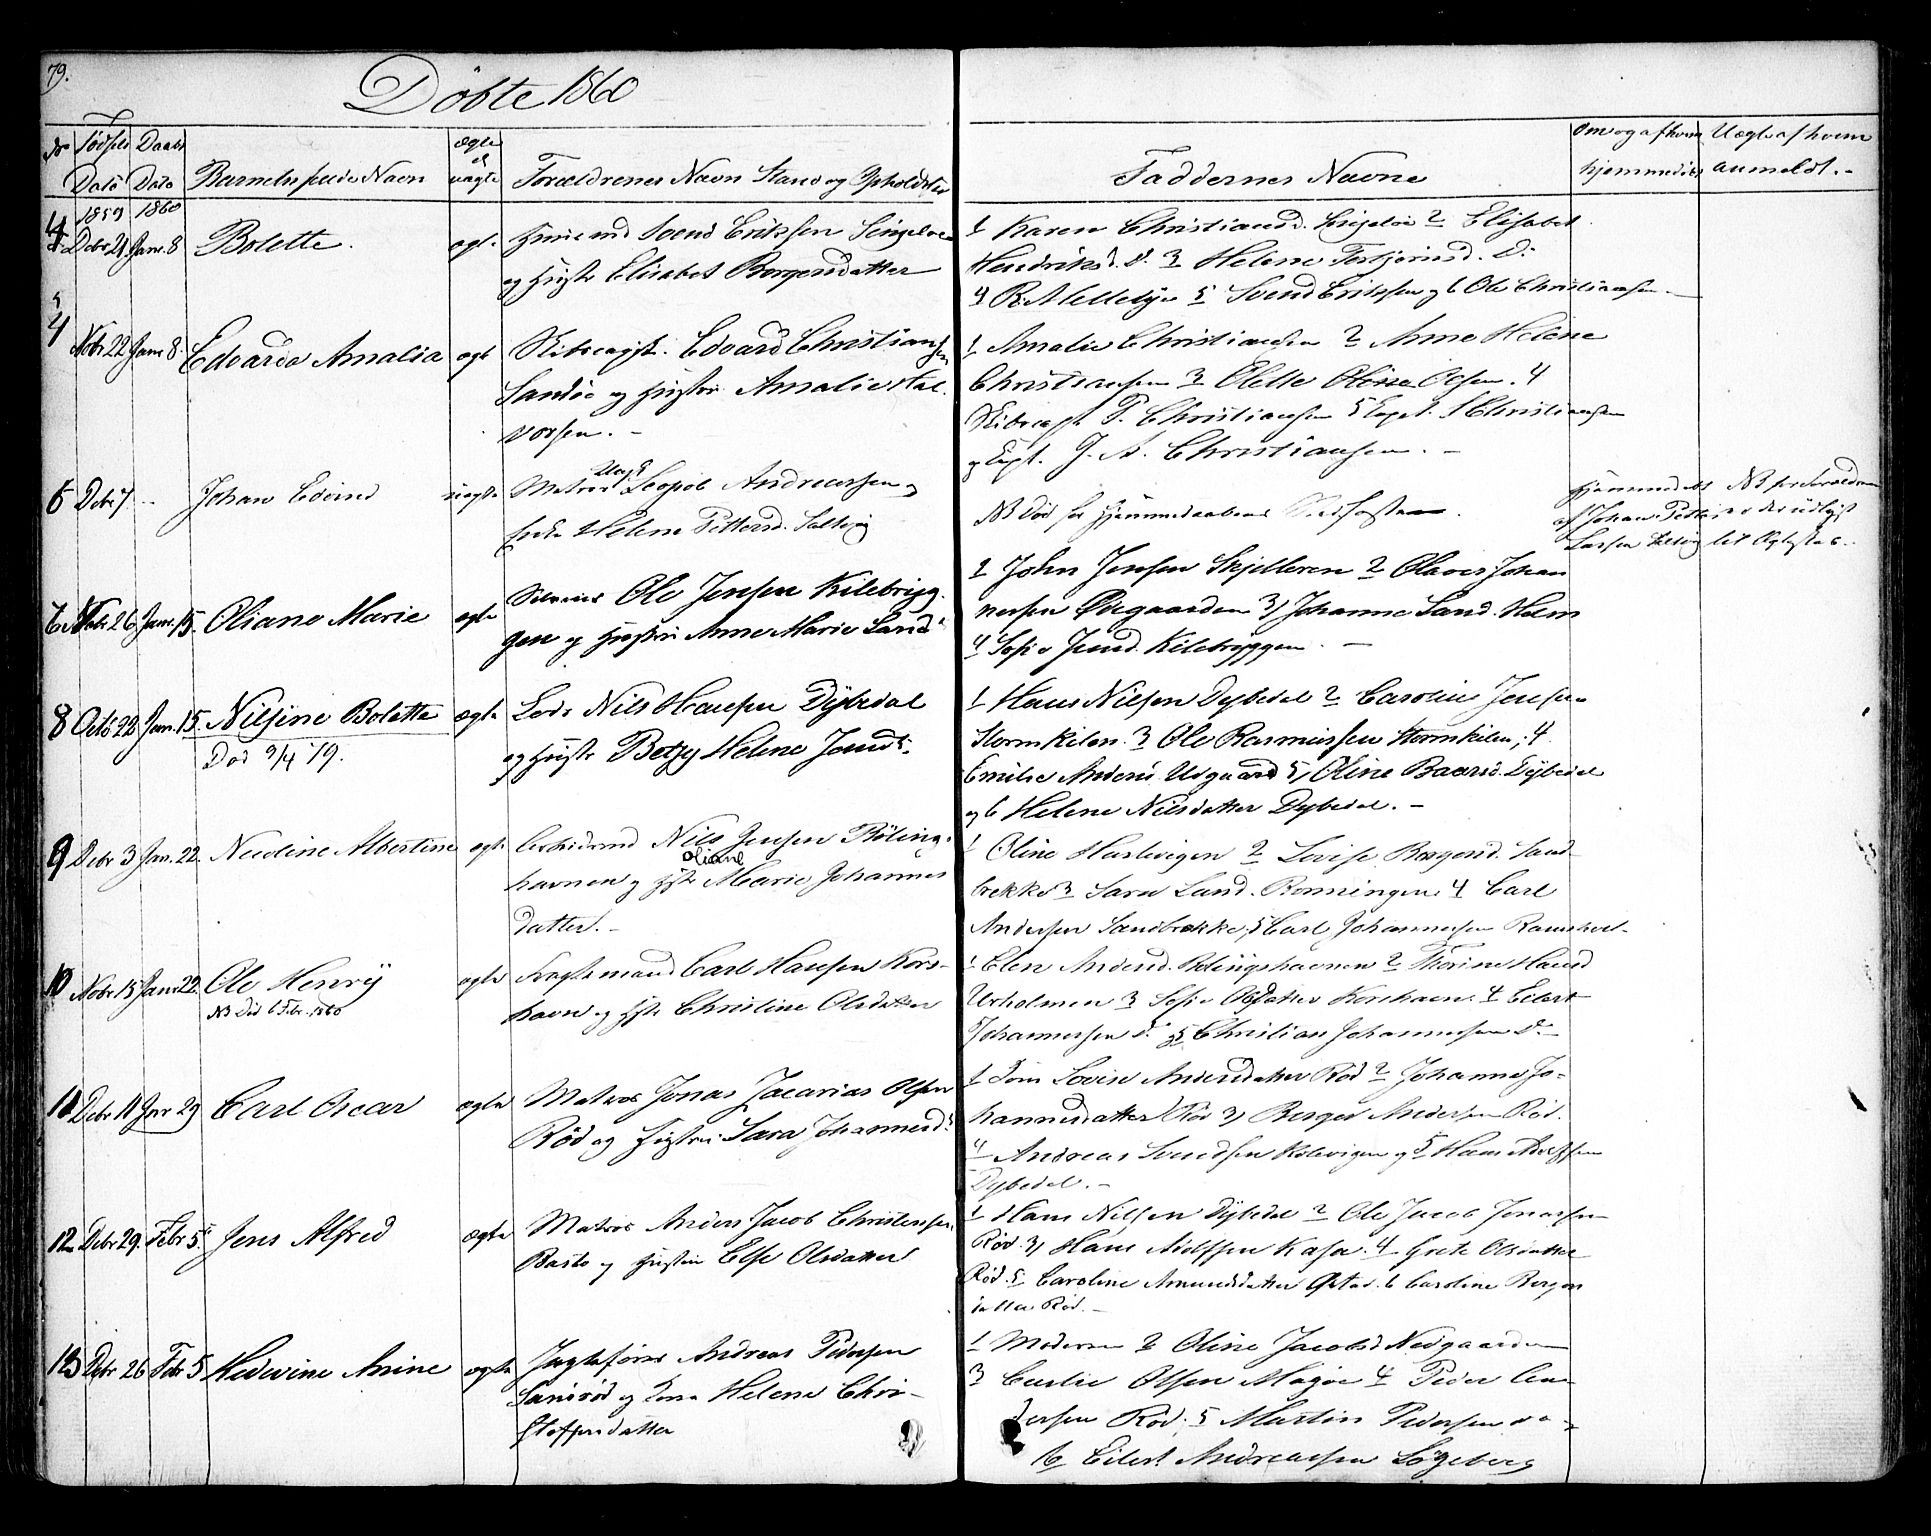 79.
Döbte 1860
No Födsels Dato
Daabs Dato
Barnets fulde Navn
ægte el uægte
Forældrenes Navn Stand og Opholdsted
Faddernes Navne
Om og af hvem hjemmedöbt
Uægte af hvem anmeldt. -
1859 1860
4 Debr 21 Jan. 8 Bolette. ægte
Svend Eriksen Singelöe
og Hustr Elisabet Borgersdatter
1 Karen Christiansd. Singelöe 2 Elisabet
Hendriksd. do. 3 Helene Torbjörnsd. Do
4 R. Mellebye 5 Svend Eriksen og 6 Ole Christiansen -
5 Nobr 22 Jan 8. Edvarda Amalia ægte
Skibscapt. Edvard Christiansen
Sandöe og Hustru Amalie Hal
vorsen. -
1 Amalie Christiansen 2 Anne Helene
Christiansen 3 Olette Olsen. 4
Skibscapt P. Christiansen 5 Capt. Christiansen
og Capt. J. A. Christiansen. -
6 Debr 7 - Johan Edvind uægte
Matros Ungk Leopol Andreassen og
Enke Helene Pettersd. Saltvig
NB Död för Hjemmedaabens Stadfæstn.
Hjemmedöbt
af Johan Petter
Larsen Saltvig
NB for Forældrene
er der udlyst
til Ægteskab.
7 Nobr 26 Jan. 15. Oliane Marie ægte
Ole Jensen Kilebryg
gen og Hustru Anne Marie Larsd
1 John Jensen Skjelleren 2 Olaves Johan
nesen Ödegaarden 3) Johanne Larsd. Holm
4 Sofie Jensd. Kilebryggen. -
8 Octb 22 Jan. 15. Nilsine Bolette ægte
Död 9/4 79.
Lods Nils Hansen Dybedal
og Hustr Betzy Helene Jensd.
1 Hans Nilsen Dybedal 2 Caroline Jensen
Stormkilen. 3 Ole Rasmussen Stormkilen; 4
Emilie Andersd. Udgaard 5) Oline Baarsd. Dybedal
og 6 Helene Nilsdatter Dybedal. -
9 Debr 3 Jan. 22. Nicoline Albertine ægte
Nils Jensen Röling
havnen og Hstr Oliane Marie Johannes
datter. -
1 Oline 2 Lovise Borgersd. Sand
brekke 3 Sara Larsd. Rönningen. 4 Carl
Andersen Sandbrekke, 5 Carl Johannesen Ramshol-
10 Nobr 15 Jan 22. Ole Henrÿ ægte
NB Död 6 Febr. 1860
Fragtemand Carl Hansen Kors-
havn og Hstr Christine Olsdatter
1 Elen Andersd. Rölingshavnen 2 Thorine Hansd
Urholmen 3 Sofie Olsdatter Korshavn. 4 Eilert
Johannessen do. og 5 Christian Johannessen Do -
11 Debr 11 Jan 29 Carl Oscar ægte
Matros Jonas Zacarias Olsen
Röd og Hustru Sara Johannesd.
1 Lovise Andersdatter Röd 2 Johanne Jo-
hannesdatter Röd 3) Borger Andersen Röd.
4 Andreas Svendsen Kolevigen og 5 Hans Adolfsen
Dybedal. -
12 Debr 29. Febr 5. Jens Alfred ægte
Matros Anders Jacob Christensen
Basto og Hustru Else Olsdatter
1 Hans Nilsen Dybedal 2 Ole Jacob Jonassen
Röd. 3) Hans Adolfsen Kasa. 4 Grete Olsdatter
Röd. 5 Caroline Amundsdatter Östad. 6 Caroline Borgers
datter Röd. -
13 Debr 26 Febr 5 Hedevine Anine ægte
Jagtsförer Andreas Pedersen
Sandröd og Kona Helene Chri-
stoffersdatter
1 Moderen 2 Oline Jacobsd Nedgaarden
3 Olsen Magöe 4 Peder An
dersen Röd. 5 Martin Pedersen do -
6 Eilert Andreassen Lögeberg